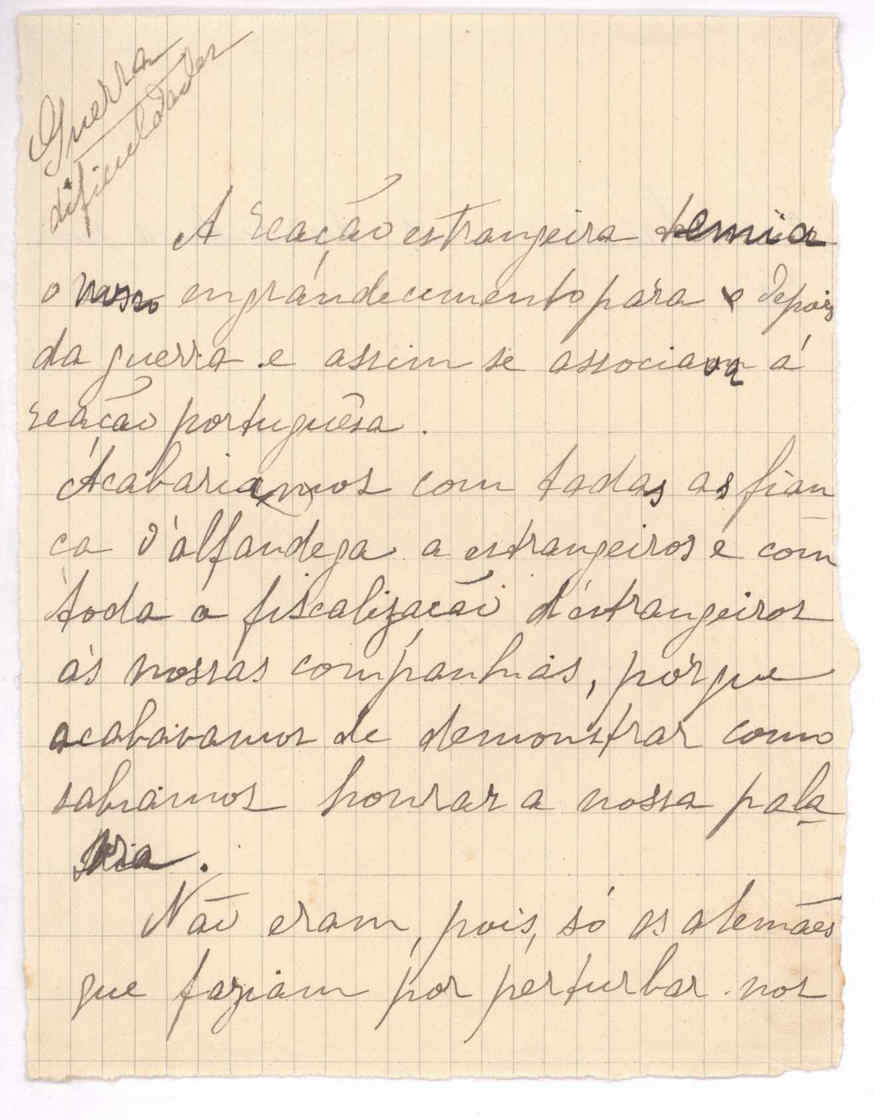 Guerra
dificuldades
A reação estrangeira temia
o nosso engrándecimento para o depois
da guerra e assim se associava á
reação portuguêsa.
Acabariamos com todas as fian
ça d'alfandega a estrangeiros e com
toda a fiscalização d'estrangeiros
ás nossas companhias, porque
acabavamos de demonstrar como
sabiamos honrar a nossa pala
vra.
Não eram, pois, só os alemães
que faziam por perturbar-nos